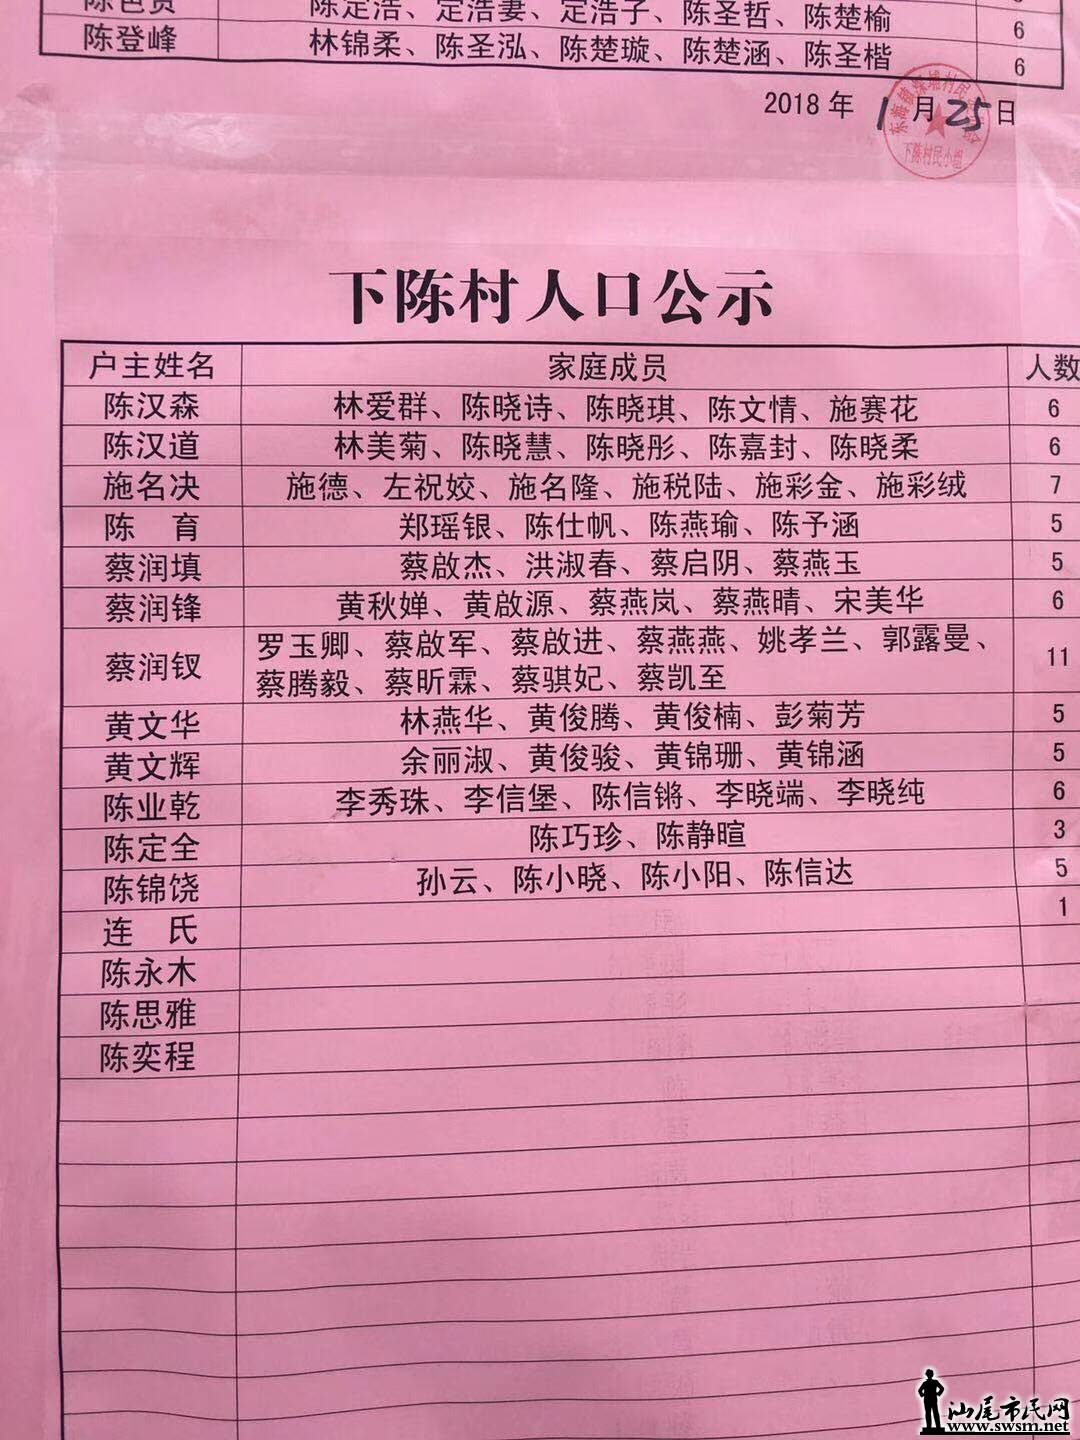 陈定浩、定浩妻、定浩子、陈圣哲、陈楚榆 6
陈登峰 林锦柔、陈圣泓、陈楚璇、陈楚涵、陈圣楷 6
2018年 1月25日
下陈村民小组
下陈村人口公示
户主姓名 家庭成员 人数
陈汉森 林爱群、陈晓诗、陈晓琪、陈文情、施赛花 6
陈汉道 林美菊、陈晓慧、陈晓彤、陈嘉封、陈晓柔 6
施名决 施德、左祝姣、施名隆、施税陆、施彩金、施彩绒 7
陈 育 郑瑶银、陈仕帆、陈燕瑜、陈予涵 5
蔡润填 蔡啟杰、洪淑春、蔡启阴、蔡燕玉 5
蔡润锋 黄秋婵、黄啟源、蔡燕岚、蔡燕晴、宋美华 6
蔡润钗 罗玉卿、蔡啟军、蔡啟进、蔡燕燕、姚孝兰、郭露曼、 11
蔡腾毅、蔡昕霖、蔡骐妃、蔡凯至
黄文华 林燕华、黄俊腾、黄俊楠、彭菊芳 5
黄文辉 余丽淑、黄俊骏、黄锦珊、黄锦涵 5
陈业乾 李秀珠、李信堡、陈信锵、李晓端、李晓纯 6
陈定全 陈巧珍、陈静暄 3
陈锦饶 孙云、陈小晓、陈小阳、陈信达 5
连 氏 1
陈永木
陈思雅
陈奕程
汕尾市民网
www.swsm.net